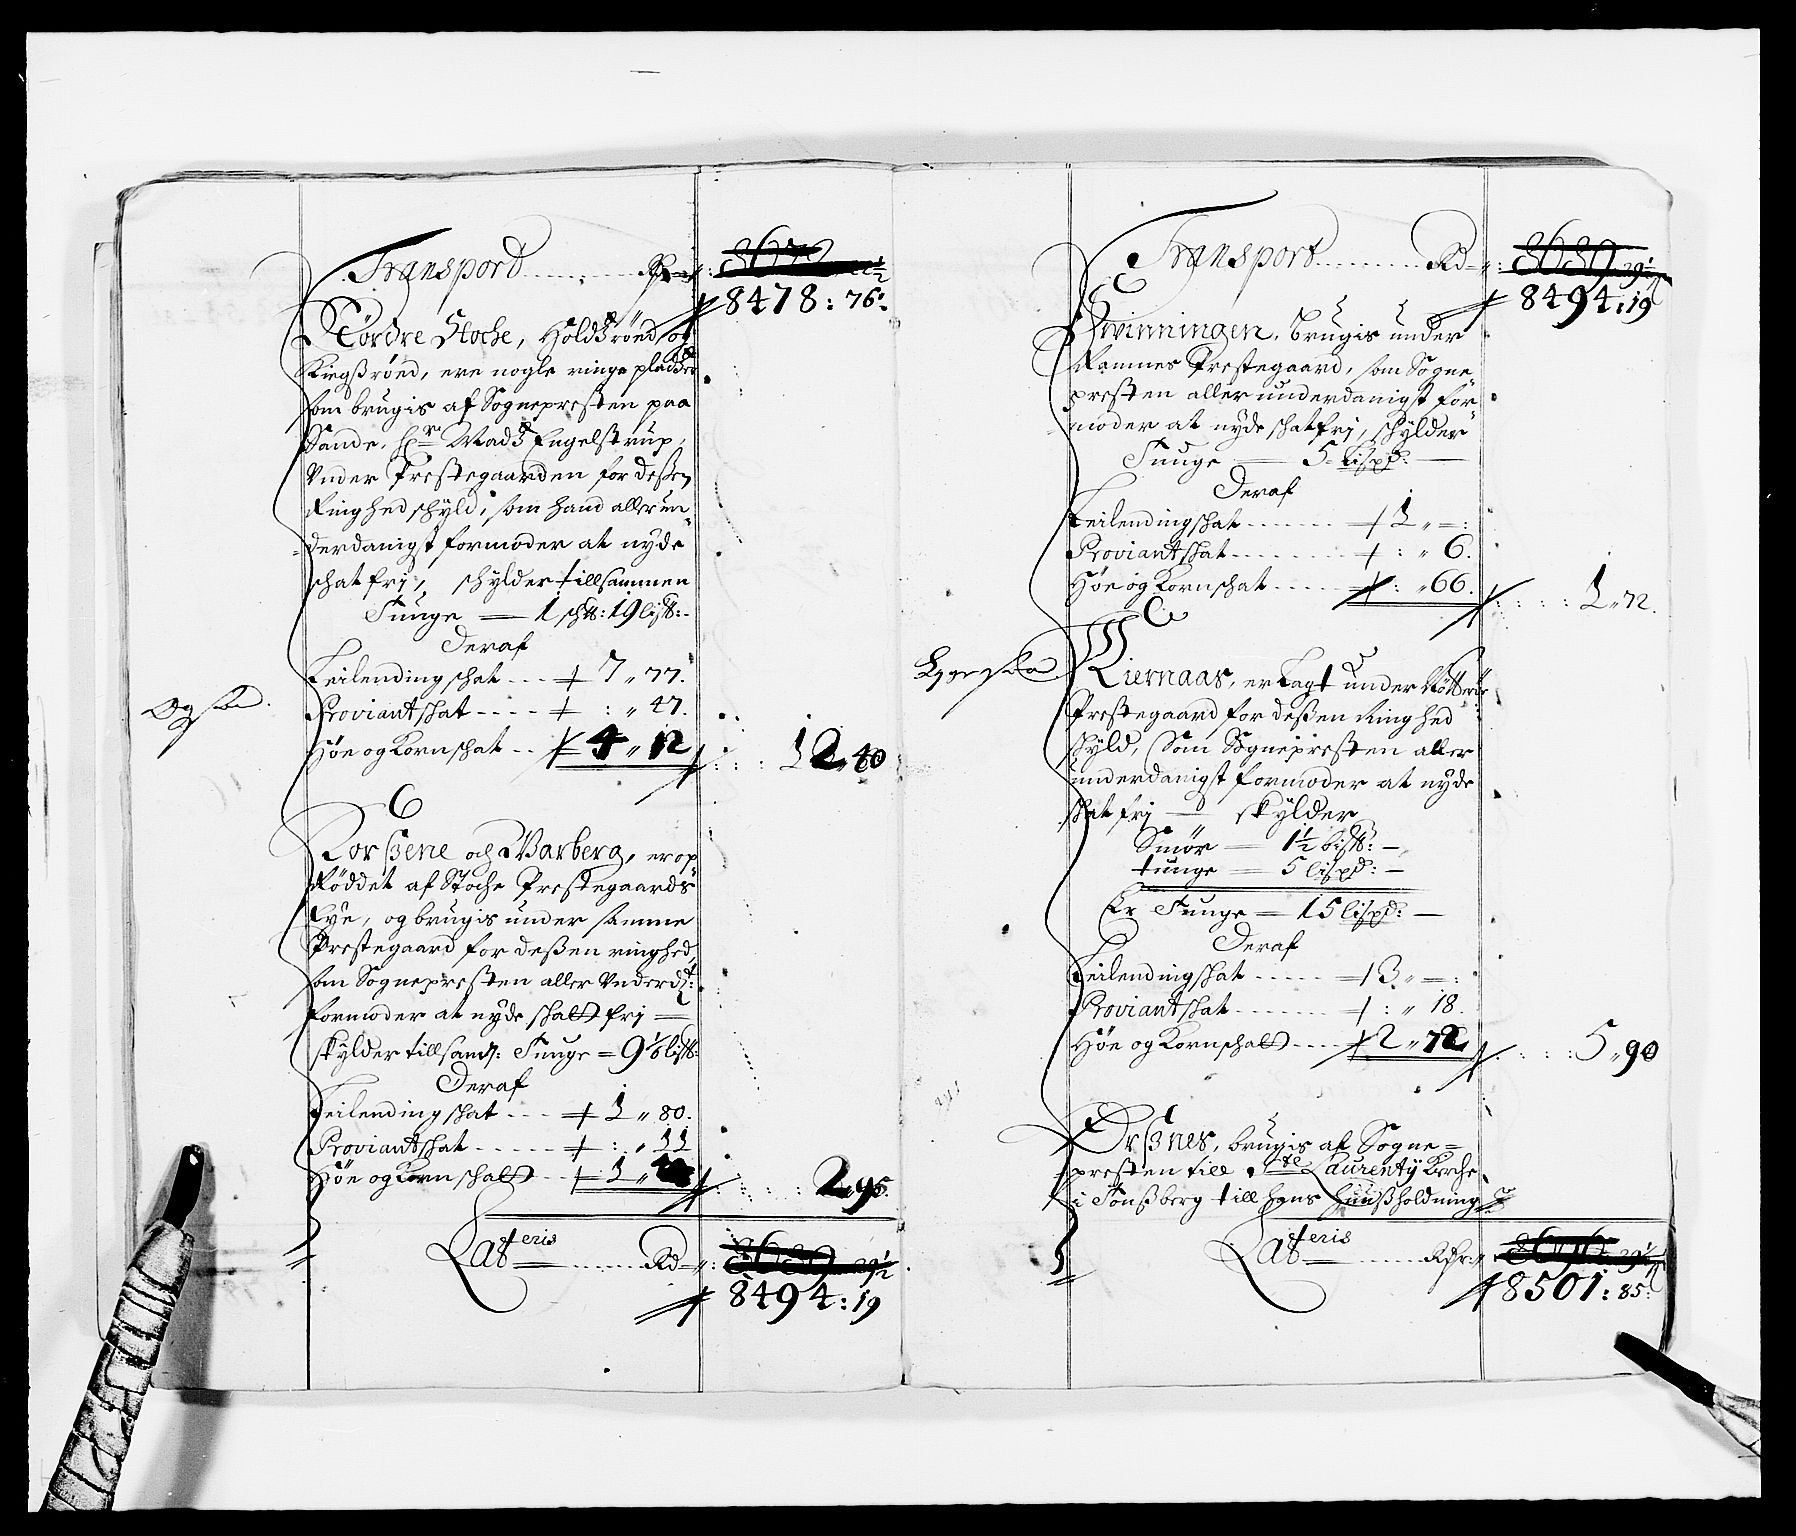 Transport ........ Rd
8478: 76
Nordre Stoche, Holdsröed og
Kirgsröed, ere nogle ringe pladder
som brugis af Sognepresten paa
Sande, Hr Mads Engelstrup,
Vnder Prestegaarden for deßen
Ringhed schyld, som hand allerun-
derdanigst formoder at nyde
schat frj, schylder tillsammen
Tunge — 1 schtt: 19 listt:
Deraf
Leilending schat ... 7 „ 77.
Ogsaa
Proviantschat .... : „ 47.
Höe og Kornschat .. 4 „ 12
12 „ 40
Korßene och Warberg, er op
Röddet af Stoche Prestegaards
Eye, og brugis under samme
Prestegaard for deßen ringhed,
som Sognepresten aller Vnderd:
formoder at nyde schatt frj —
skylder tillsam: Tunge = 9 listt:
Deraf
Leilending schat ... 1 „ 80.
Proviantschat ..... : „ 11
Höe og Kornschatt .. 1 „
2 „ 95.
Lateris ...... Rd
8494: 19
Transport ........ Rd
8494: 19
Qvinningen, brugis under
Ramnes Prestegaard, som Sogne
presten aller underdanigst for-
moder at nyde schatfrj, schylder
Tunge — 5 lispd: —
Deraf
Leilendingschat ...... 1 „ = :
Proviantschat ....... : „ 6.
Höe og Kornschat ..... : „ 66.
1 „ 72.
Kiernaas, er Lagt under Nötterüe
Prestegaard for deßen Ringhed
schyld, som Sognepresten aller
underdanigst formoder at nyde
schat frj — skylder
Smör — 1½ listt: —
tunge — 5 lispd: —
Er Tunge — 15 lispd: —
Deraf
Leilendingschat ..... 3 „ = :
Proviantschat ....... : „ 18.
Höe og Kornschatt .... 2 „ 72
5 „ 90
Orßnes, brugis af Sogne=
presten till Ste Laurentÿ Kirche
i Tönßberg till hans Huußholdning
Lateris ...... Rdr
8501: 85: